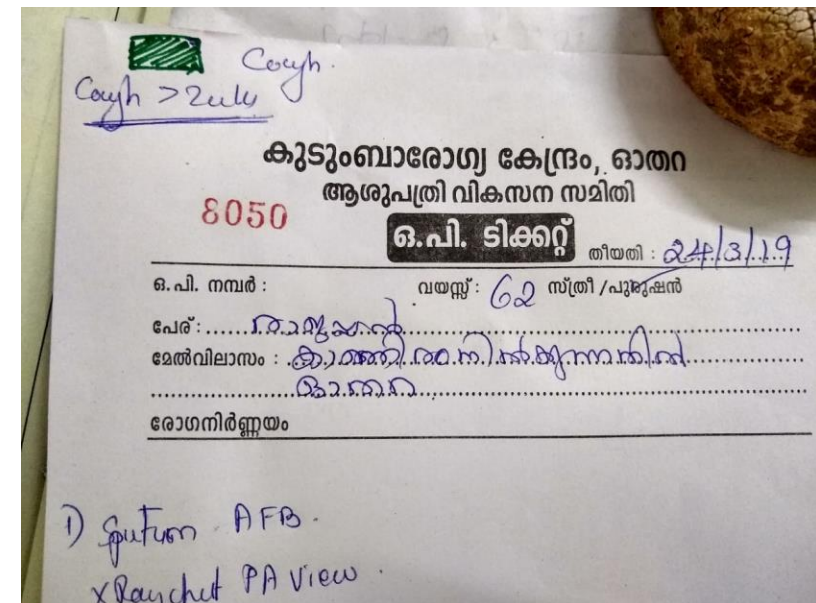 Cough.
Cough > 2wks
കുടുംബാരോഗ്യ കേന്ദ്രം, ഓതറ
ആശുപത്രി വികസന സമിതി
8050
ഒ.പി. ടിക്കറ്റ്
തീയതി : 24/3/19
ഒ.പി. നമ്പർ : വയസ്സ് : 62 സ്ത്രീ /പുരുഷൻ
പേര് :
മേൽവിലാസം :
ഓതറ
രോഗനിർണ്ണയം
1) Sputum AFB.
X Ray chest PA View.